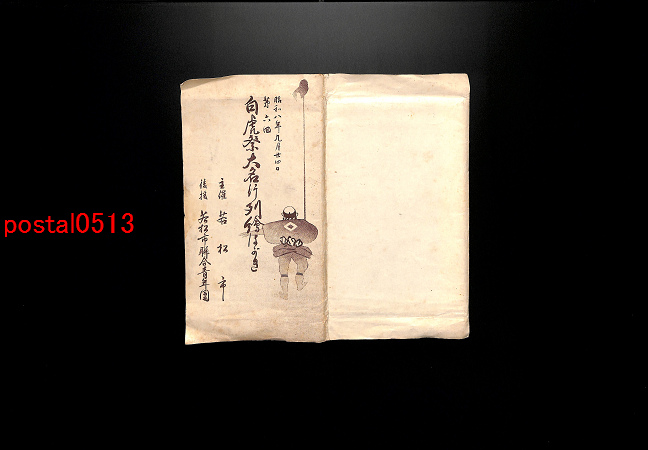 昭和八年九月廿四日
第六回
白虎祭大名行列繪はがき
主催 若松市
後援 若松市聯合青年團
postal0513